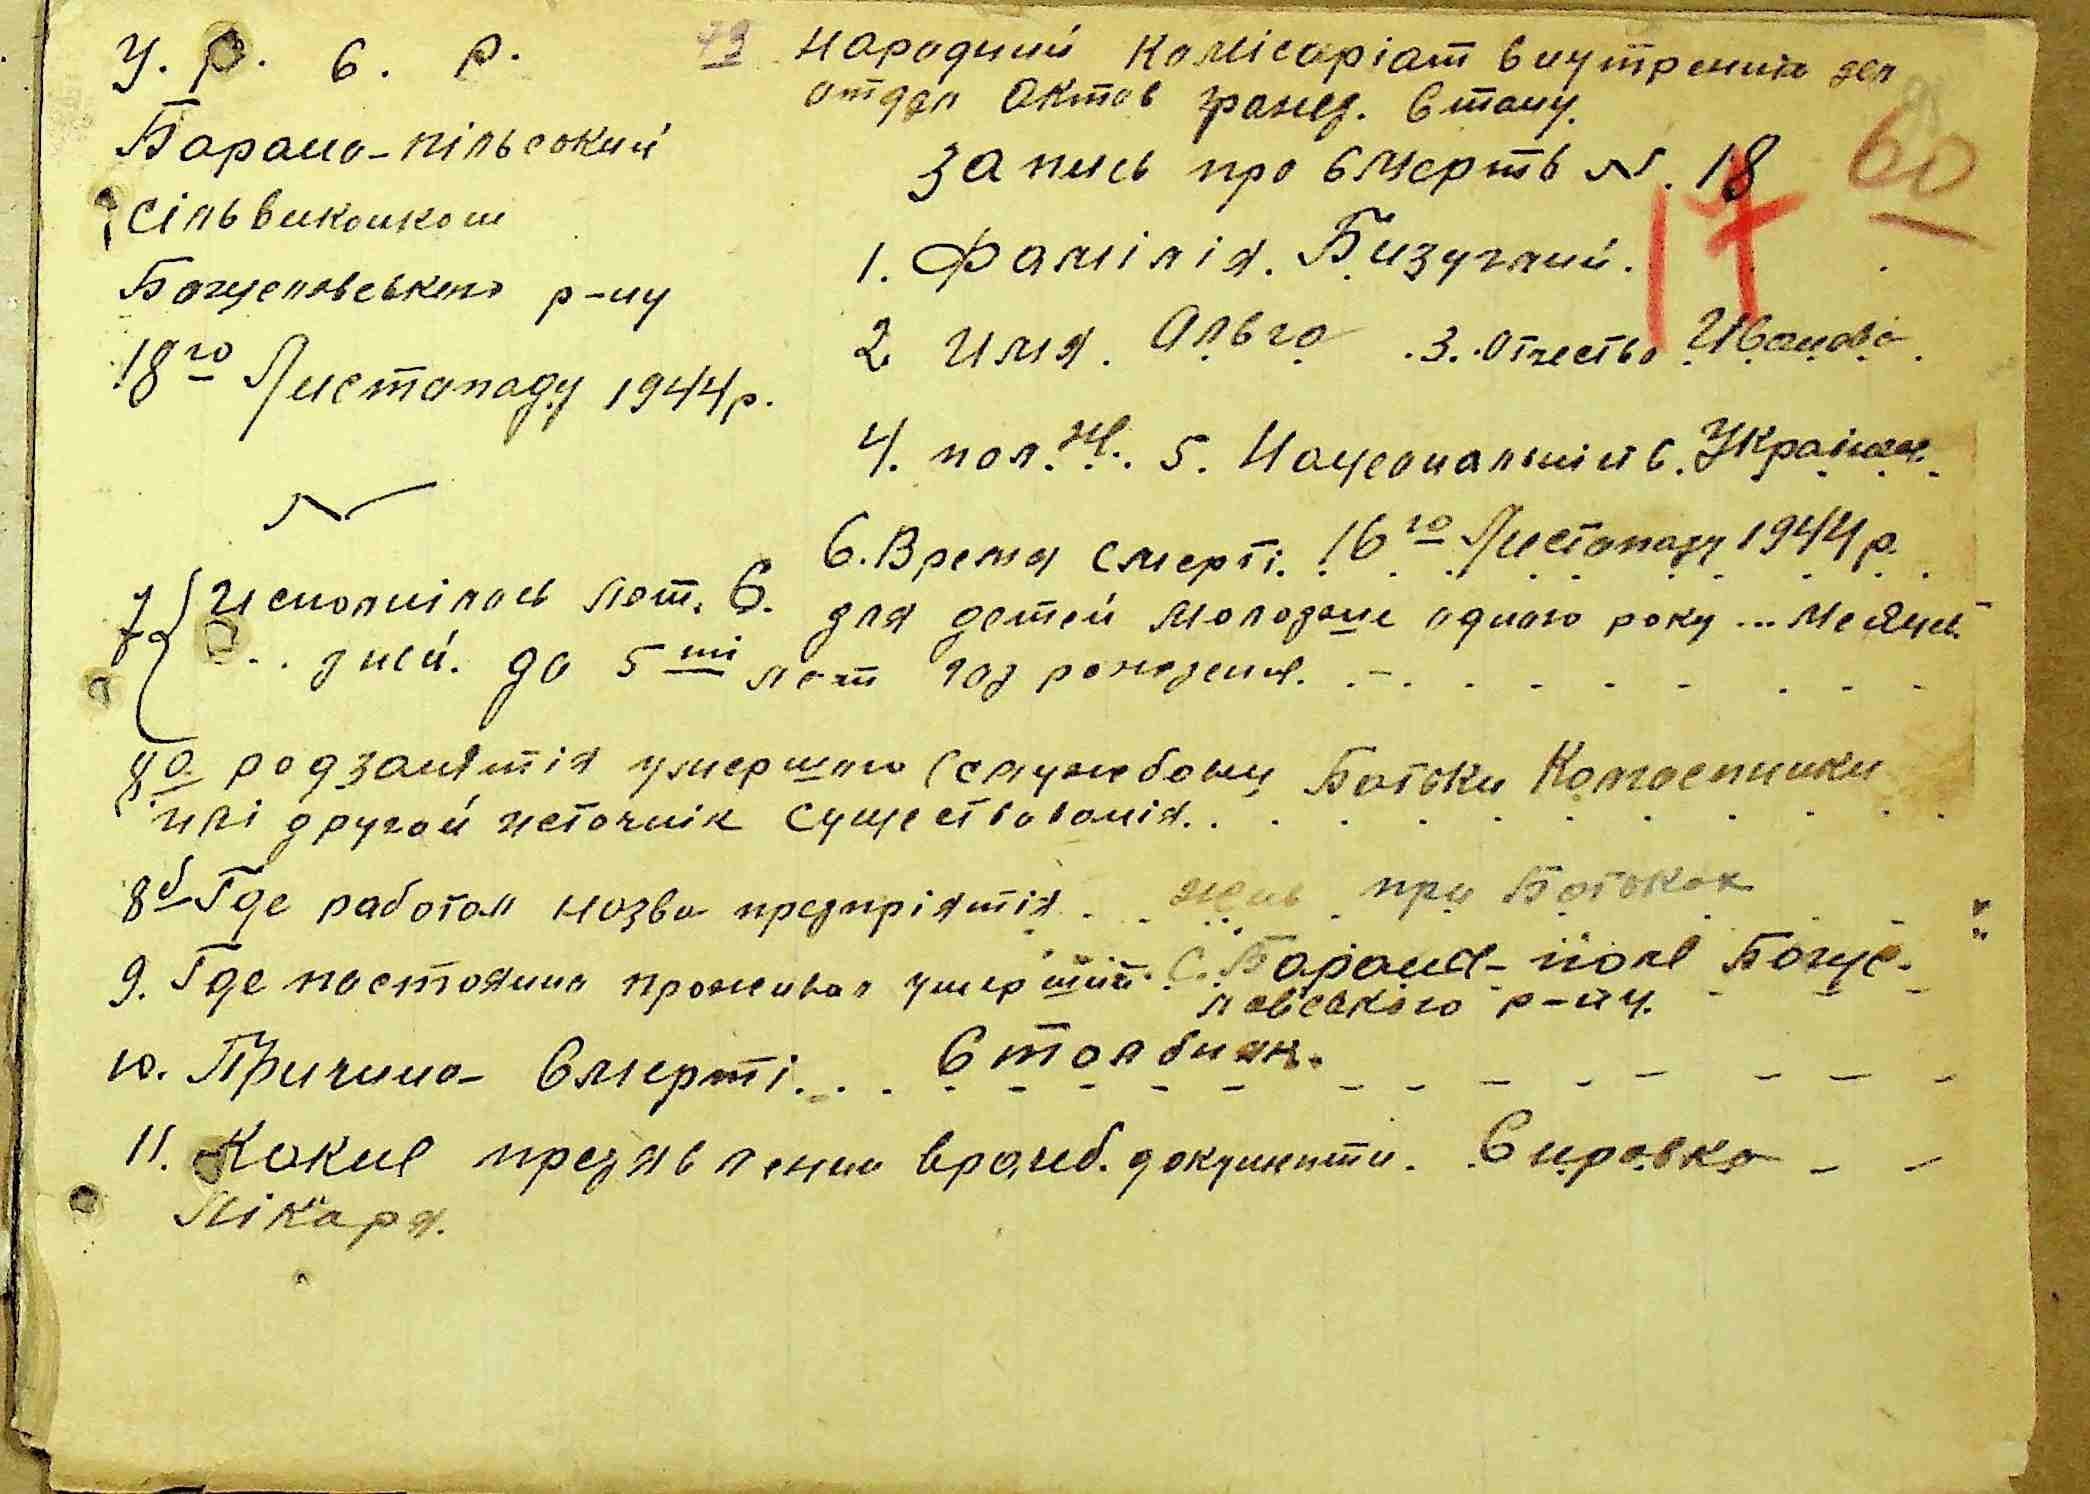 У. Р. С. Р.
Барано-пільський
сільвиконком
Богуславського р-ну
18го Листопаду 1944 р.
Народний Комісаріат внутрених дел
отдел Актов гражд. Стану.
Запись про Смерть N. 18
17
60
1. Фамілія. Бизуглий.
2 Имя. Ольга . 3. Отчество Иванова.
4. пол. Ж. 5. Националький с. Украінк.
6. Время смерті. 16го Листопаду 1944 р.
7 { Исполнілось лет. 6. для детей молодше одного року ... Месяцев
... дней. до 5ті лет год рождения. . - . . . . . . .
8а. род занятія умершого (службовы Батьки Колгоспники
илі другой источнік существованія. . . . . . . . . . .
8б Где работал назва предпріятія . . жив при Батьках
9. Где постояно проживал умерший. С. Бараня-поле Богус-
лавського р-ну.
10. Причина Смерті. . . Столбняк.
11. Какие предявлении врачеб. документи. Справка - -
Лікаря.